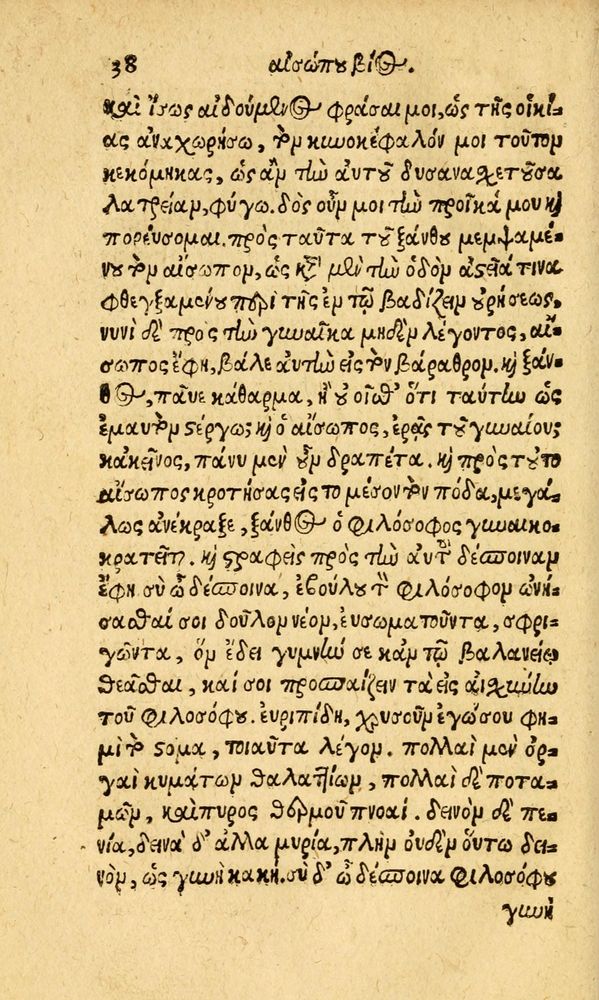 38 αἰσώπου βίος.
καὶ ἴσως αἰδούμενος φράσαι μοι, ὡς τῆς οἰκί-
ας ἀναχωρήσω, τὸν κυνοκέφαλόν μοι τοῦτον
κεκόμηκας, ὡς ἂν τὴν αὐτοῦ δυσανασχετοῦσα
λατρείαν, φύγω. δὸς οὖν μοι τὴν προῖκά μου καὶ
πορεύσομαι. πρὸς ταῦτα τοῦ ξάνθου μεμψαμέ-
νου τὸν αἴσωπον, ὡς κατὰ μὲν τὴν ὁδὸν ἀστεῖά τινα
φθεγξαμένου περὶ τῆς ἐν τῷ βαδίζειν οὐρήσεως,
νυνὶ δὲ πρὸς τὴν γυναῖκα μηδὲν λέγοντος, αἴ-
σωπος ἔφη, βάλε αὐτὴν εἰς τὸν βάραθρον. καὶ ξάν-
θος, παῦε κάθαρμα, ἢ οὐκ οἶσθ' ὅτι ταύτην ὡς
ἐμαυτὸν στέργω; καὶ ὁ αἴσωπος, ἐρᾷς τοῦ γυναίου;
κἀκεῖνος, πάνυ μὲν οὖν δραπέτα. καὶ πρὸς τοῦτο
αἴσωπος κροτήσας εἰς τὸ μέσον τὸν πόδα, μεγά-
λως ἀνέκραξε, ξάνθος ὁ φιλόσοφος γυναικο-
κρατεῖται. καὶ στραφεὶς πρὸς τὴν αὐτοῦ δέσποιναν
ἔφη σὺ ὦ δέσποινα, ἐβούλου τὸν φιλόσοφον ὠνή-
σασθαί σοι δοῦλον νέον, εὐσωματοῦντα, σφρι-
γῶντα, ὃν ἔδει γυμνὴν σε κἀν τῷ βαλανείῳ
θεᾶσθαι, καί σοι προσπαίζειν τὰ εἰς αἰσχύνην
τοῦ φιλοσόφου. εὐριπίδη, χρυσοῦν ἐγώ σου φη-
μὶ τὸ στόμα, τοιαῦτα λέγον. πολλαὶ μὲν ὀρ-
γαὶ κυμάτων θαλαττίων, πολλαὶ δὲ ποτα-
μῶν, καὶ πυρὸς θερμοῦ πνοαί. δεινὸν δὲ πε-
νία, δεινὰ δ' ἄλλα μυρία, πλὴν οὐδὲν οὕτω δει-
νὸν, ὡς γυνὴ κακή. σὺ δ' ὦ δέσποινα φιλοσόφου
γυνὴ